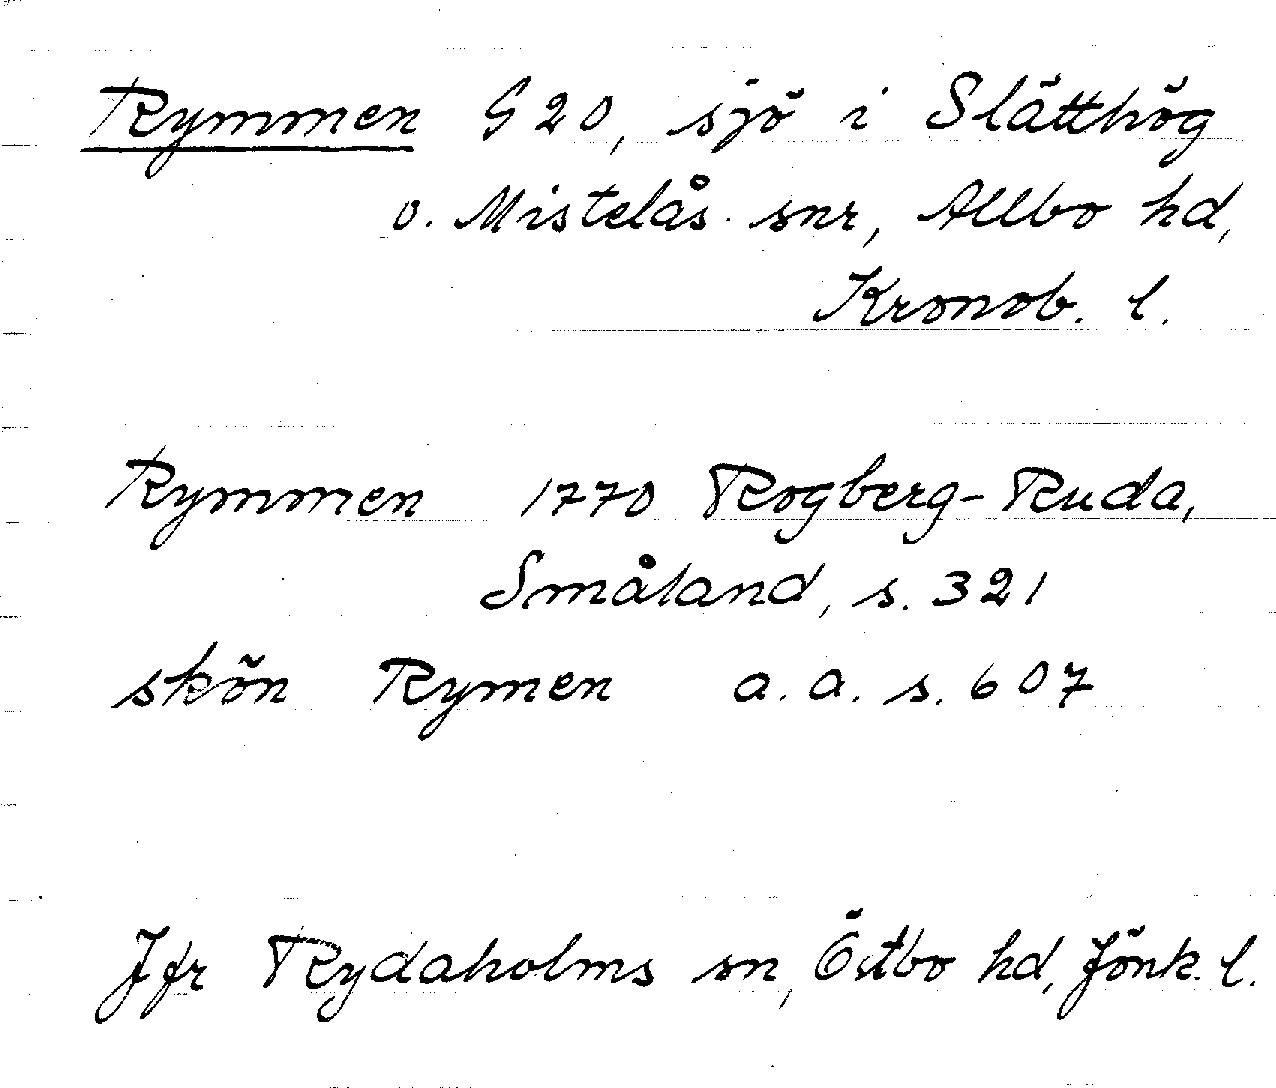 Rymmen G 20, sjö i Slätthög
o. Mistelås snr, Allbo hd,
Kronob. l.
Rymmen 1770 Rogberg-Ruda,
Småland, s. 321
skön Rymen a. a. s. 607
Jfr Rydaholms sn, Östbo hd, Jönk. l.